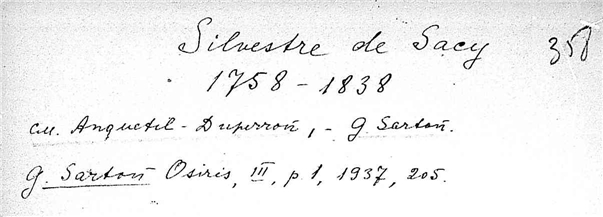 Silvestre de Sacy 358
1758 - 1838
см. Anquetil - Duperron, - G. Sarton.
G. Sarton Osiris, III, p 1, 1937, 205.